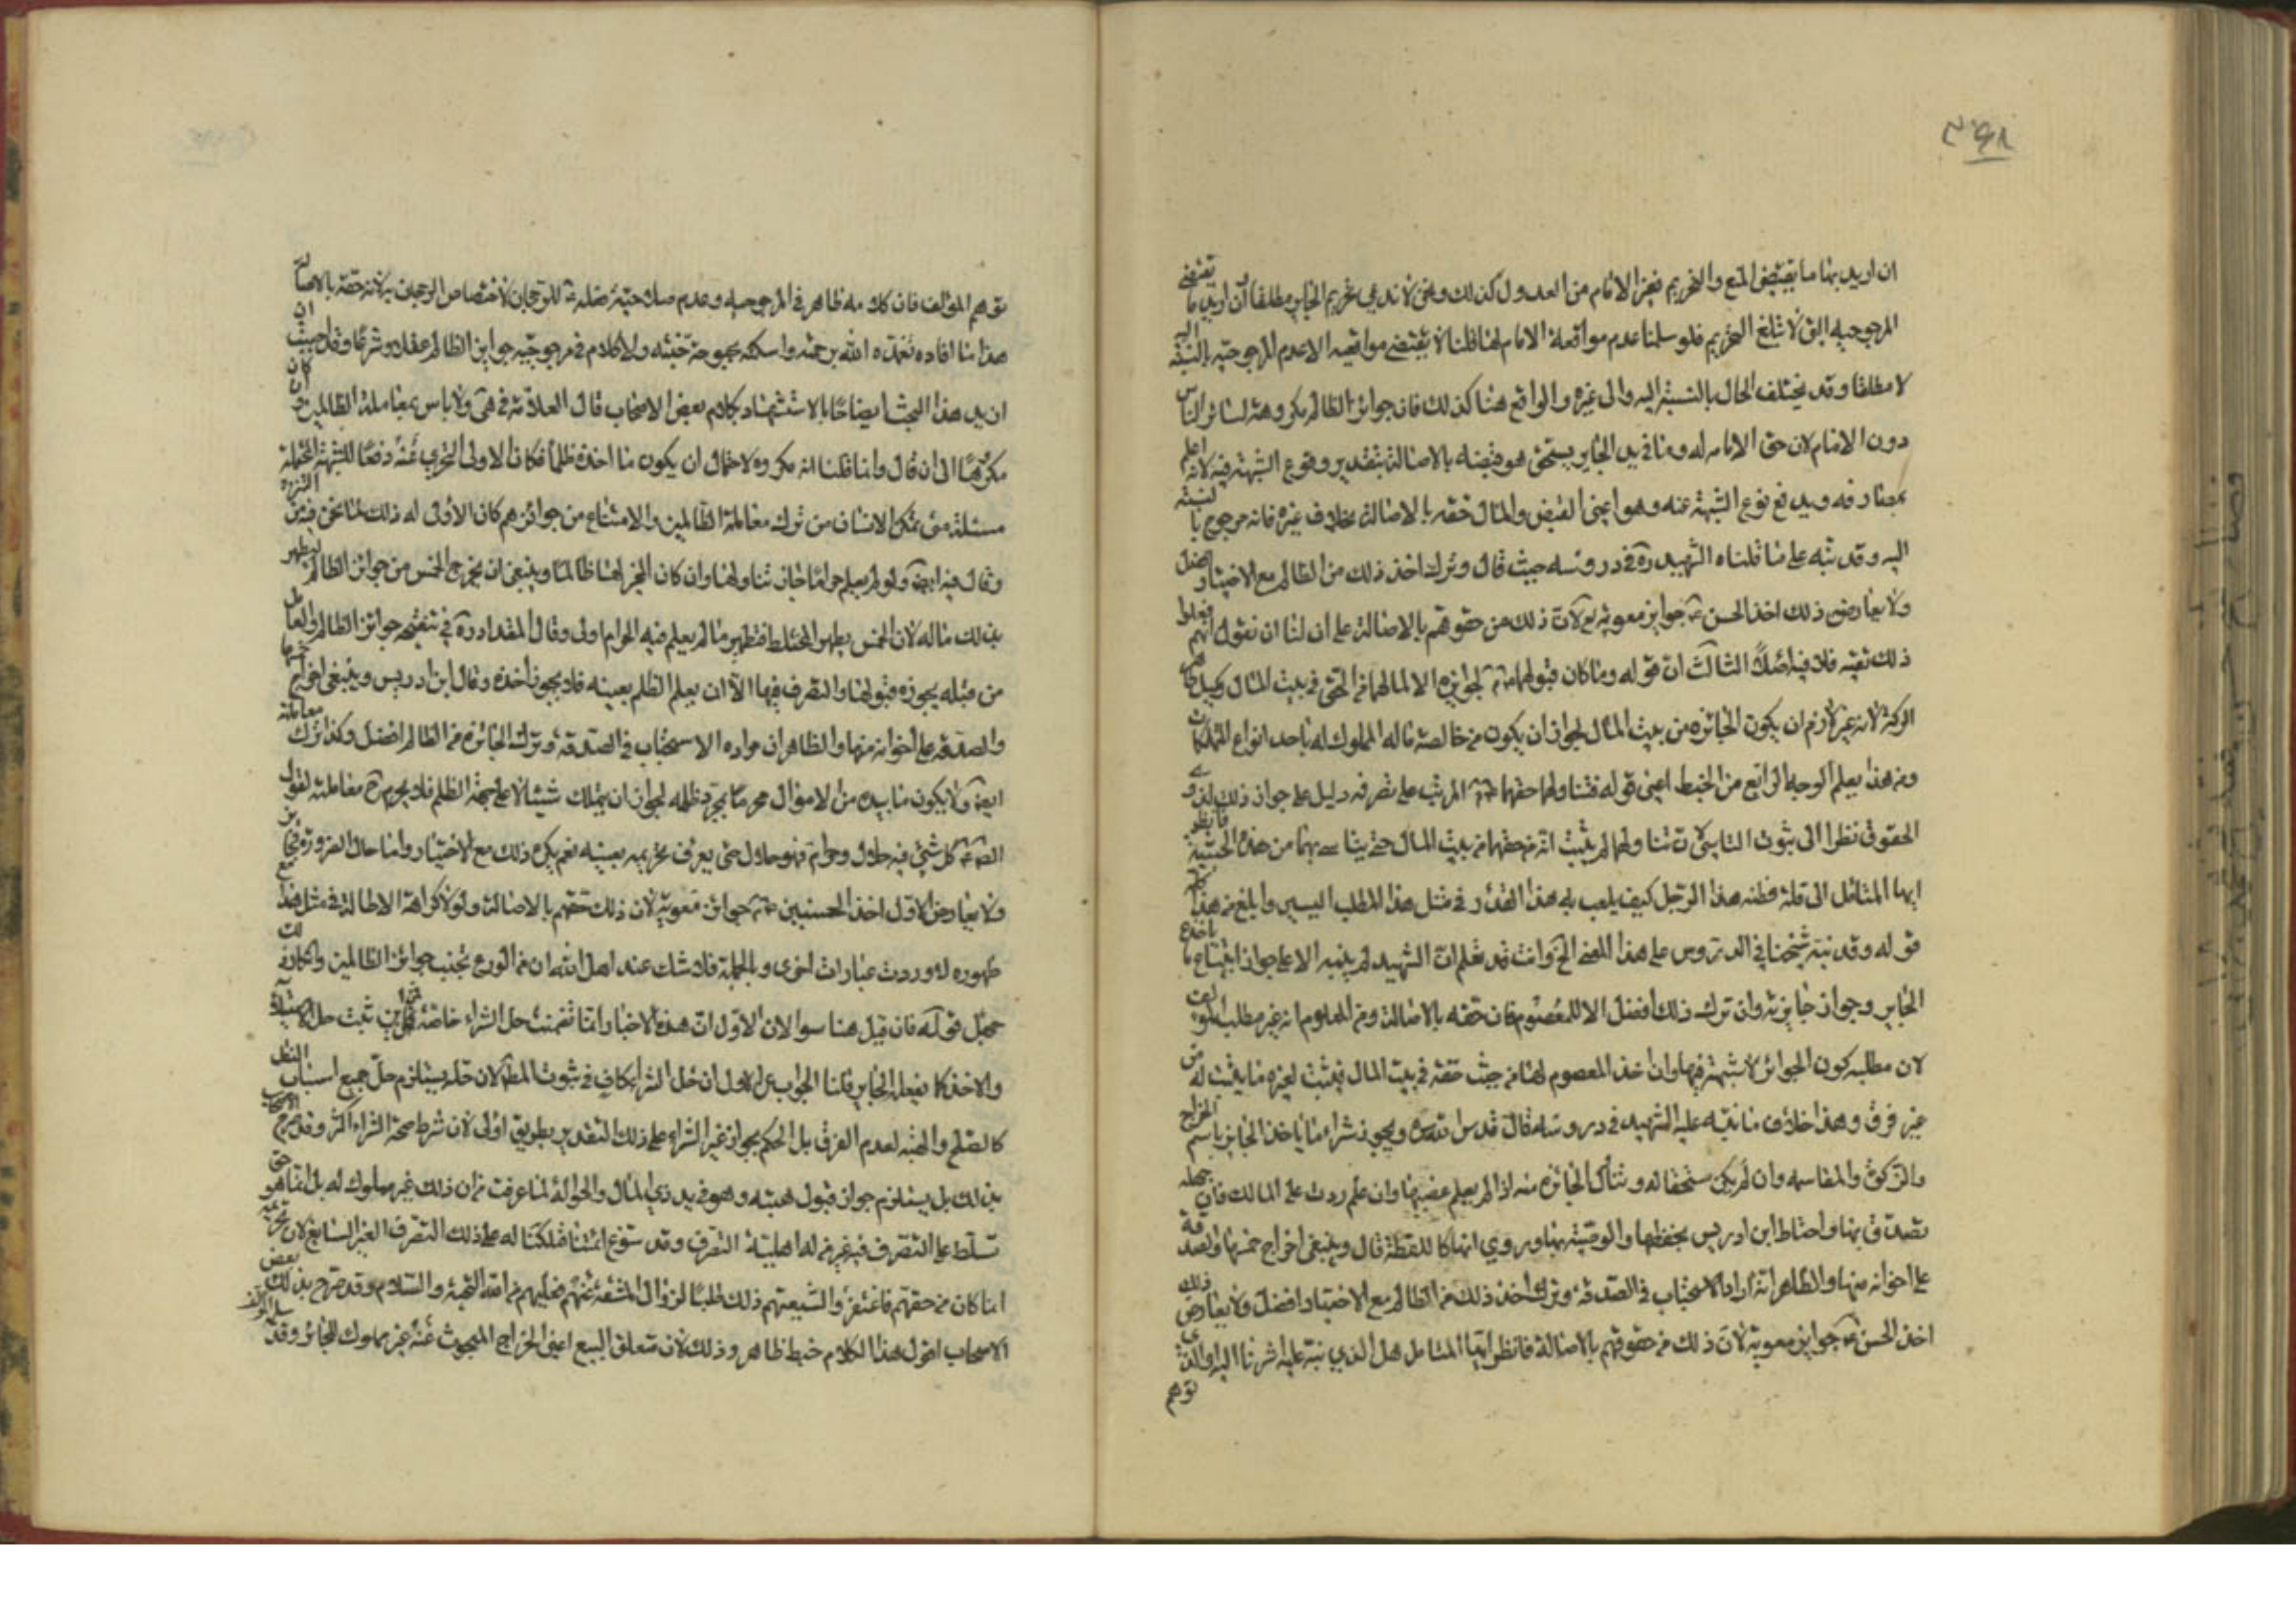 ٣٩٨
ان اريد بها ما يقتضى المنع والتحريم فغير الامام من العدول كذلك ونحن لا ندعى تحريم الجايز مطلقا وان اريد ما يقتضى
المرجوحيه التى لا تبلغ التحريم فلو سلمنا عدم مواقعة الامام لها قلنا لا يقتضى مواقعيه الا عدم المرجوحيه بالنسبة اليه
لا مطلقا وقد يختلف الحال بالنسبة اليه والى غيره والواقع هنا كذلك فان جوائز الظالم مكروهة لسائر الناس
دون الامام لان حق الامامه له وما فى يد الجاير يستحق هو قبضه بالاصالة بتقدير وقوع الشبهة فيه لانه اعلم
بمصارفه ويدفع نوع الشبهة عنه وهو اعنى القبض والمال حقه بالاصالة بخلاف غيره فانه مرجوح بالنسبة
اليه وقد نبه على ما قلناه الشهيد ره فى دروسه حيث قال وترك اخذ ذلك من الظالم مع الاختيار افضل
ولا يعارض ذلك اخذ الحسن ع جوايز معوية لان ذلك من حقوقهم بالاصالة على ان لنا ان نقول انهم فعلوا
ذلك تقيه فلا فيه اصلا الثالث ان قوله وما كان قبولهما ع لجوايزه الا لما لهما من الحق فى بيت المال
لانه غير لازم ان يكون الجائزه من بيت المال لجواز ان يكون من خالصة ماله المملوك له باحد انواع التملكات
ومن هذا يعلم الوجه الرابع من الخبط اعنى قوله فتناولهما حقهما المرتب على تصرفه دليل على جواز ذلك لذوى
الحقوق نظرا الى ثبوت التاسى لان تناولهما لم يثبت انه من حقهما من بيت المال حتى يتاسى بهما من هذه الحيثية فانظر
ايها المتامل الى قلة فطنه هذا الرجل كيف يلعب به هذا القدر فى مثل هذا المطلب اليسير وابلغ من هذا
قوله وقد نبه شيخنا فى الدروس على هذا المعنى الخ وانت قد تعلم ان الشهيد لم ينبه الا على جواز ابتياع ما ياخذه
الجاير وجواز جايزته وان ترك ذلك افضل الا للمعصوم فان حقه بالاصالة ومن المعلوم انه غير مطلب المؤلف
لان مطلبه كون الجوائز لا شبهة فيها وان اخذ المعصوم لها من حيث حقه فى بيت المال فيثبت لغيره ما يثبت له من
غير فرق وهذا خلاف ما نبه عليه الشهيد فى دروسه قال قدس سره ويجوز شراء ما ياخذ الجاير باسم الخراج
والزكوة والمقاسمه وان لم يكن مستحقا له الجائزه منه اذا لم يعلم غصبها وان علم ردت على المالك فان جهله
تصدق بها واحتاط ابن ادريس بحفظها والوصية بها وروى انها كاللقطة قال وينبغى اخراج خمسها والصدقة
على اخوانه منها والظاهر انه اراد الاستحباب فى الصدقة وترك اخذ ذلك من الظالم مع الاختيار افضل ولا يعارض ذلك
اخذ الحسن ع جوايز معوية لان ذلك من حقوقهم بالاصالة فانظر ايها المتامل هل الذى نبه عليه اشرنا اليه او الذى
توهم
توهم المؤلف فان كلامه ظاهر فى المرجوحيه وعدم للرجحان لاختصاص الرجحان به لانه حقه بالاصالة
هذا ما افاده تغمده الله برحمته واسكنه بحبوحة جنته ولا كلام فى مرجوحيه جوايز الظالم عقلا وشرعا وقد احببت ان
ازيد هذا البحث ايضاحا بالاستشهاد بكلام بعض الاصحاب قال العلامة فى هى ولا باس بمعاملة الظالمين وان كان
مكروها الى ان قال وانما قلنا انه مكروه لاحتمال ان يكون ما اخذه ظلما فكان الاولى التحرى عنه دفعا للشبهة المحتملة
مسئلة متى تمكن الانسان من ترك معاملة الظالمين والامتناع من جوائزهم كان الاولى له ذلك لما نحن فيه من التنزه
وقال فيه ايضا ولو لم يعلم حراما جاز تناولها وان كان المجيز لها ظالما وينبغى ان يخرج الخمس من جوائز الظالم ليطهر
بذلك ماله لان الخمس يطهر المختلط فتطهير ما لم يعلم فيه الحرام اولى وقال المقداد ره فى تنقيحه جوائز الظالم والعامل
من قبله يجوز قبولها والتصرف فيها الا ان يعلم الظلم بعينه فلا يجوز اخذه وقال ابن ادريس وينبغى اخراج خمسها
والصدقه على اخوانه منها والظاهر ان مراده الاستحباب فى الصدقة وترك الجائزه من الظالم افضل وكذا ترك معاملته
ايضا ولا يكون ما بيده من الاموال محرما بمجرد ظلمه لجواز ان يملك شيئا لا على جهة الظلم فلا يحرم ح معاملته لقول
الصادق ع كل شئ فيه حلال وحرام فهو حلال حتى يعرف تحريمه بعينه نعم يكره ذلك مع الاختيار واما حال الضرورة فجايز
ولا يعارض الاول اخذ الحسنين ع جوائز معوية لان ذلك حقهم بالاصالة ولولا كراهة الاطالة فى مثل هذا مع
ظهوره لاوردت عبارات اخرى وبالجملة فلا شك عند اهل الله ان من الورع تجنب جوائز الظالمين وانكار ذلك
جهل قوله فان قيل هنا سوالان الاول ان هذه الاخبار انما تضمنت حل الشراء خاصة فمن اين ثبت حل الاستيلاء
والاخذ كما يفعله الجاير قلنا الجواب عن الاول ان حل الشراء كاف فى ثبوت المط لان حله يستلزم حل جميع اسباب النقل
كالصلح والهبه لعدم الفرق بل الحكم بجواز غير الشراء على ذلك التقدير بطريق اولى لان شرط صحة الشراء اكثر وقد صرح الاصحاب
بذلك بل يستلزم جواز قبول هبته وهو فى يد ذى المال والحوالة لما عرفت من ان ذلك غير مملوك له بل انما هو حق
تسلط على التصرف فيه غير من له اهلية التصرف وقد سوغ ائمتنا تملكنا له على ذلك التصرف الغير السايغ لان تحريمه
انما كان من حقهم فاغتفروا لشيعتهم ذلك طلبا لزوال المشقة عنهم فعليهم من الله التحية والسلام وقد صرح بذلك بعض
الاصحاب اقول هذا الكلام خبط ظاهر وذلك لان متعلق البيع اعنى الخراج المبحوث عنه غير مملوك للجائز وقد